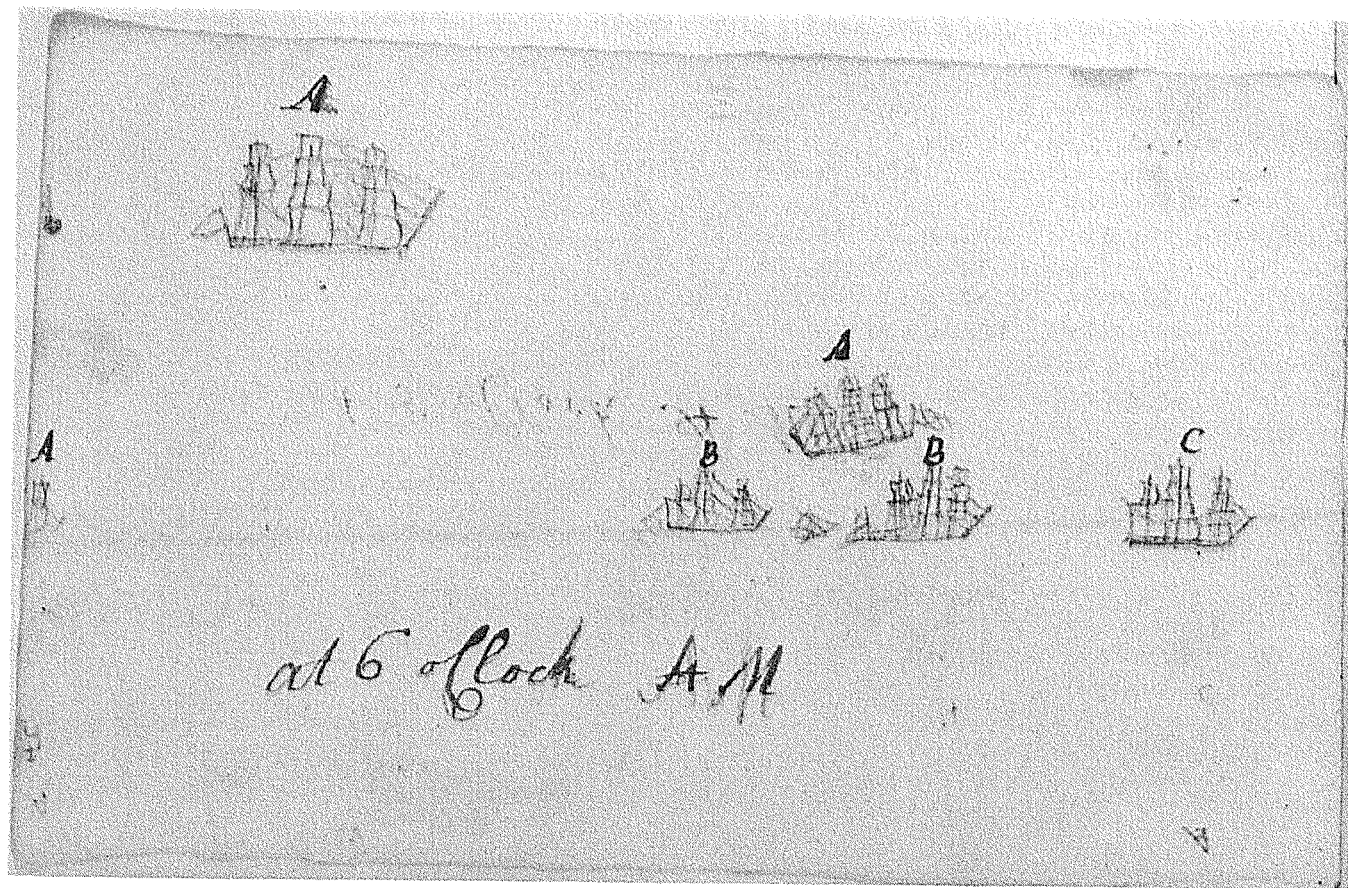 A
A
A
B
B
C
at 6 oClock AM